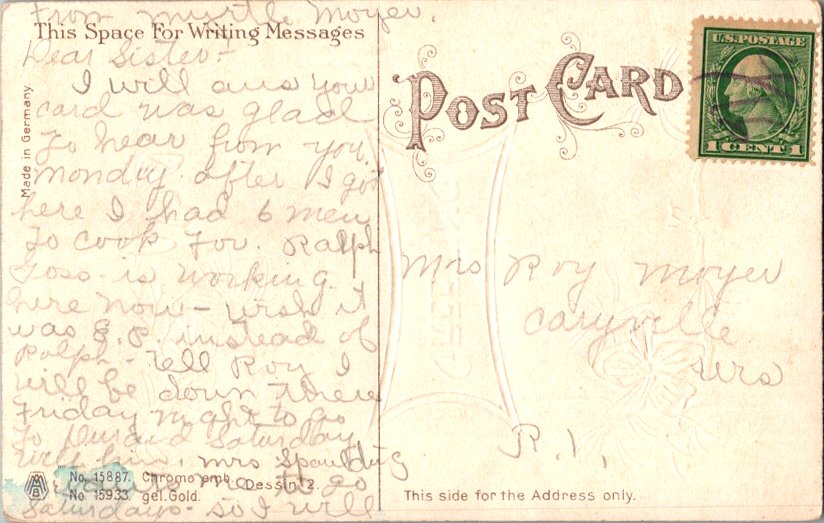 From Myrtle Moyer.
This Space For Writing Messages
Dear Sister:-
I will ans your
card was glad
to hear from you.
Monday after I got
here I had 6 men
to cook for. Ralph
Goss is working
here now - wish it
was E.P. instead of
Ralph - Tell Roy I
will be down there
Friday night to go
to Durand Saturday
with him. Mrs Spaulding
me to go
Saturdays - so I will
Made in Germany.
No. 15887. Chromo emb. Dessin 2.
No 15933 gel. Gold.
POST CARD
U.S. POSTAGE
1 CENT 1
Mrs Roy Moyer
Caryville
Wis
R.1,
This side for the Address only.